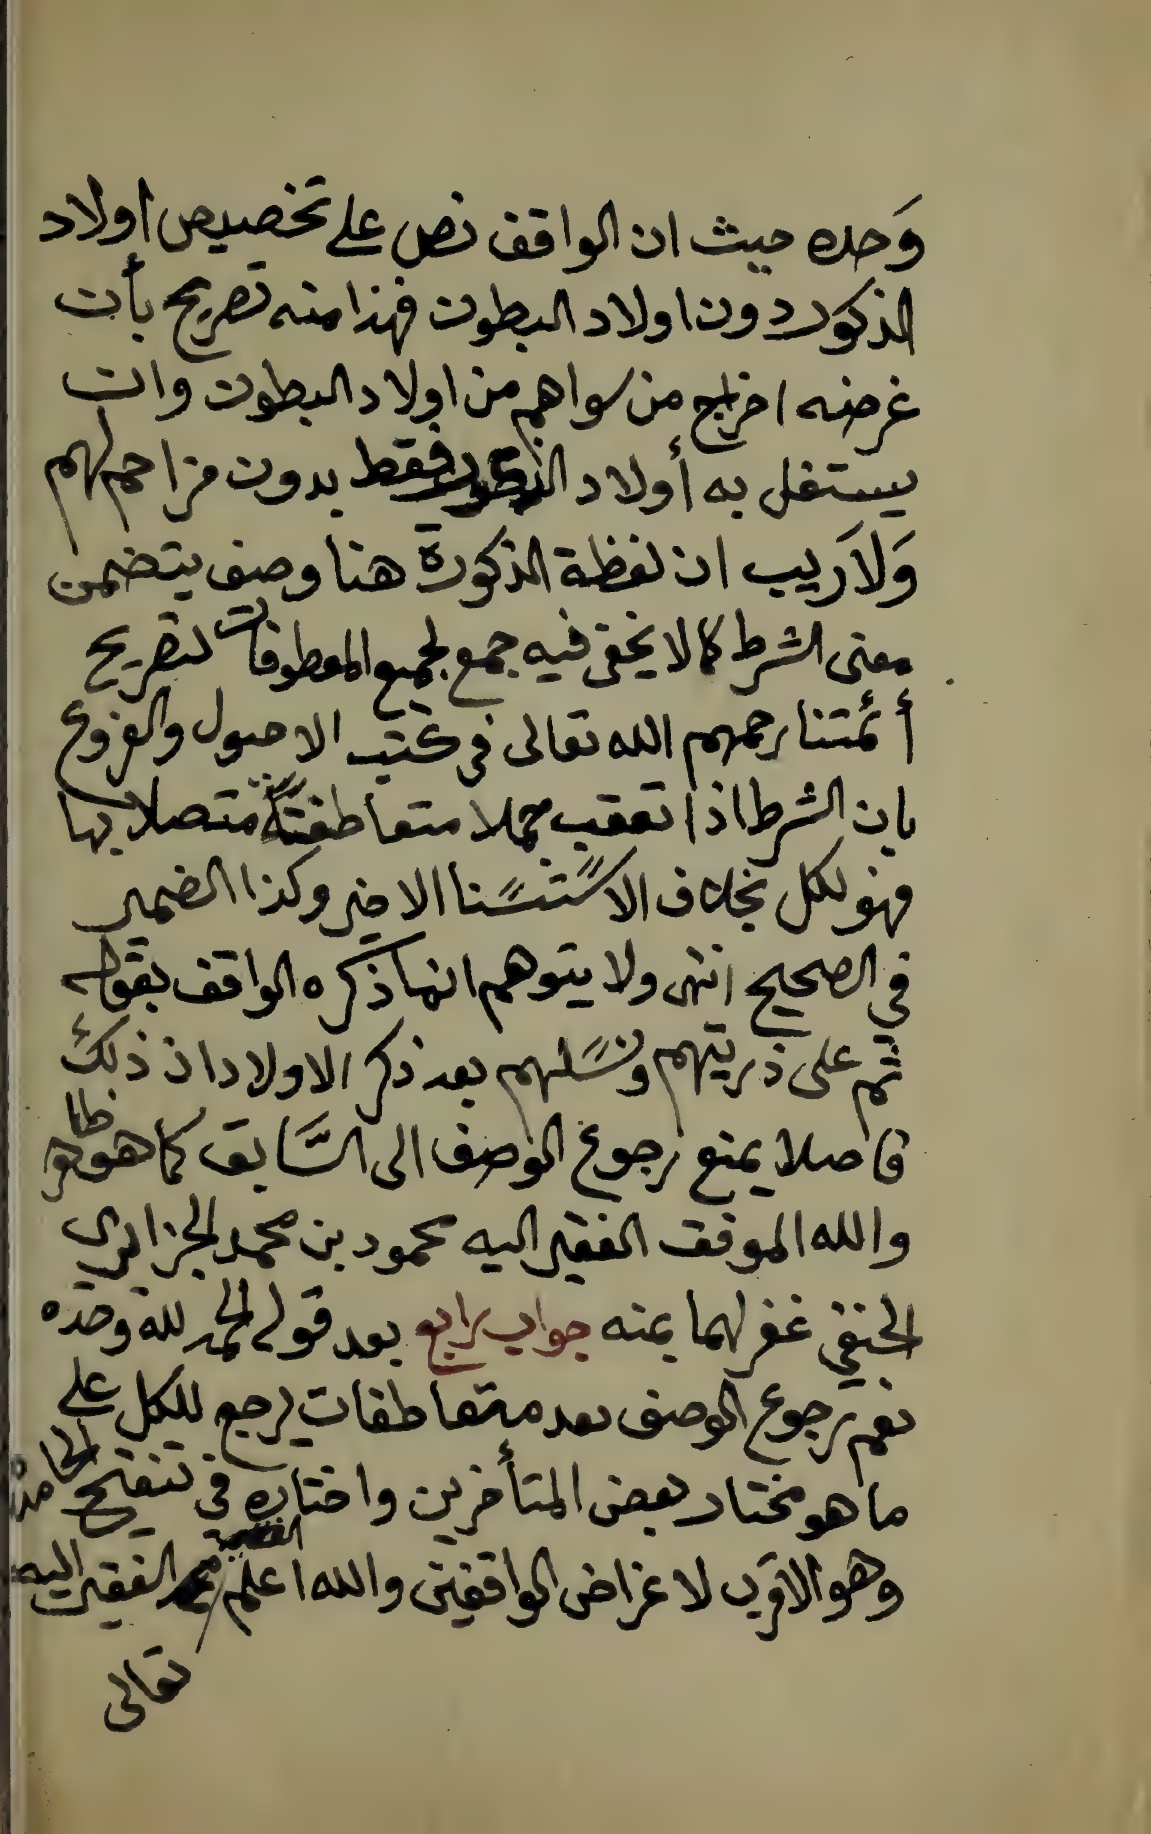 وَحده حيث ان الواقف نص على تخصيص اولاد
الذكور دون اولاد البطون فهذا منه تصريح بأن
غرضه اخراج من سواهم من اولاد البطون وان
يستقل به أولاد الذكور فقط بدون مزاحم لهم
وَلاَ ريب ان لفظة الذكورة هنا وصف يتضمن
معنى الشرط كما لا يخفى فيه جمع لجميع المعطوفات لتصريح
أئمتنا رحمهم الله تعالى في كتب الاصول والفروع
بان الشرط اذا تعقب جملا متعاطفة متصلا بها
فهو للكل بخلاف الاستسنا الاخير وكذا الضمير
في الصحيح انتهى ولا يتوهم انما ذكره الواقف بقوله
ثم على ذريتهم ونسلهم بعد ذكر الاولاد ان ذلك
فاصلا يمنع رجوع الوصف الى السَّابق كما هو ظاهر
والله الموفق الفقير اليه محمود بن محمد الجزايري
الحنفي غفر لهما بمنه جواب رابع بعد قوله الحمد لله وحده
نعم رجوع الوصف بعد متعاطفات يرجع للكل على
ما هو مختار بعض المتأخرين واختاره في تنقيح الحامد
وهو الاقرب لاغراض الواقفين والله اعلم الفقير اليه
تعالى